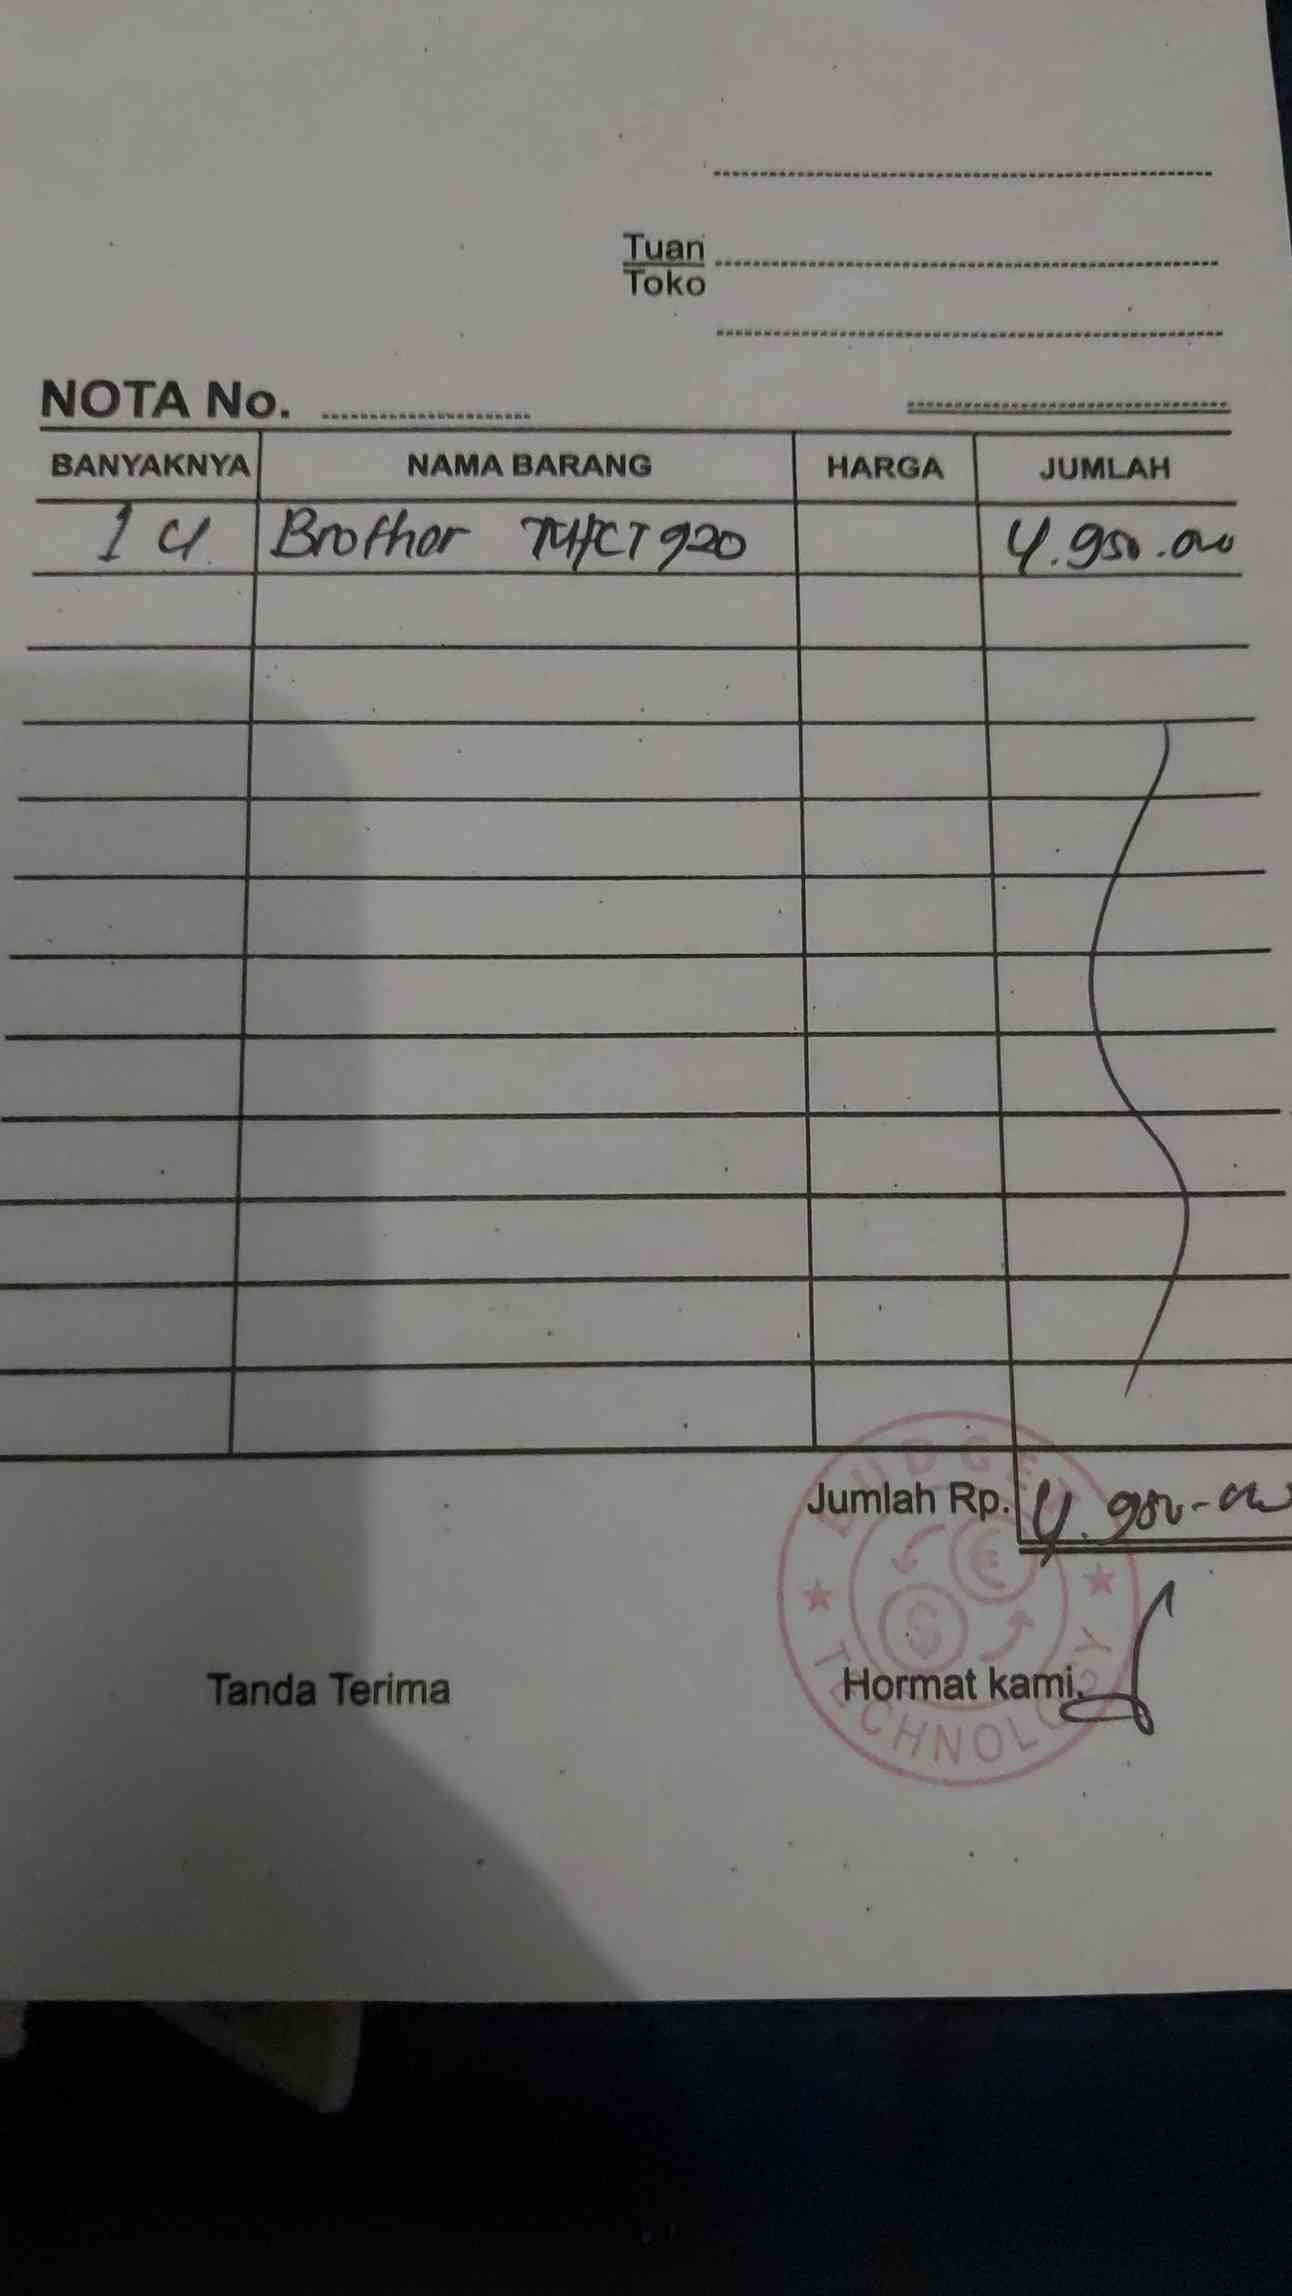 Tuan
Toko
NOTA No.
BANYAKNYA NAMA BARANG HARGA JUMLAH
1 U Brother CT920 4.950.000
Jumlah Rp. 4.950.000
BUDGET
TECHNOLOGY
Tanda Terima Hormat kami.